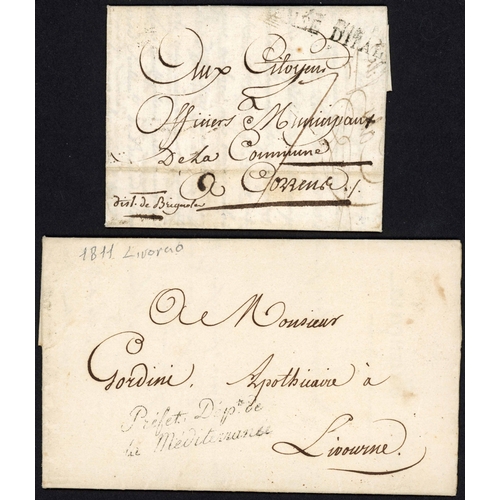 D'ITAL
Aux Citoyens
Officiers Municipaux
De La Commune
a Correns
dist. de Brignole
1811 Livorno
A Monsieur
Gordini, Apothicaire à
Préfet. Dépt. de
la Méditerranée
Livourne.